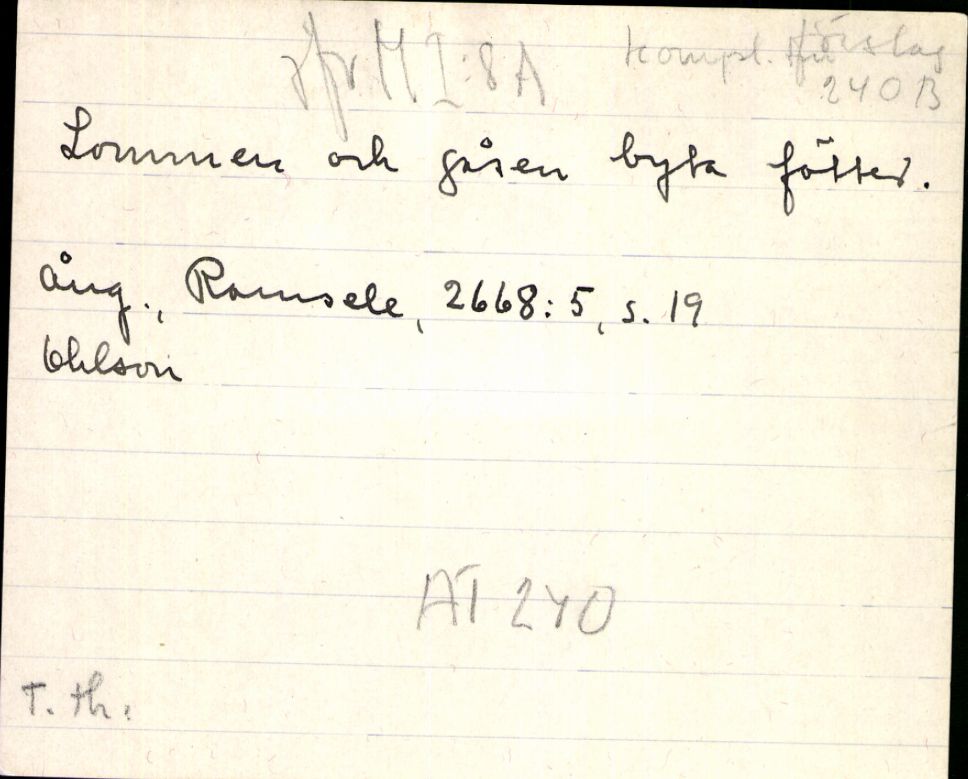 jfr M I:8A kompl. förslag
240B
Lommen och gåsen byta fötter.
Ång., Ramsele, 2668:5, s. 19
Ohlson
AT 240
T. th.